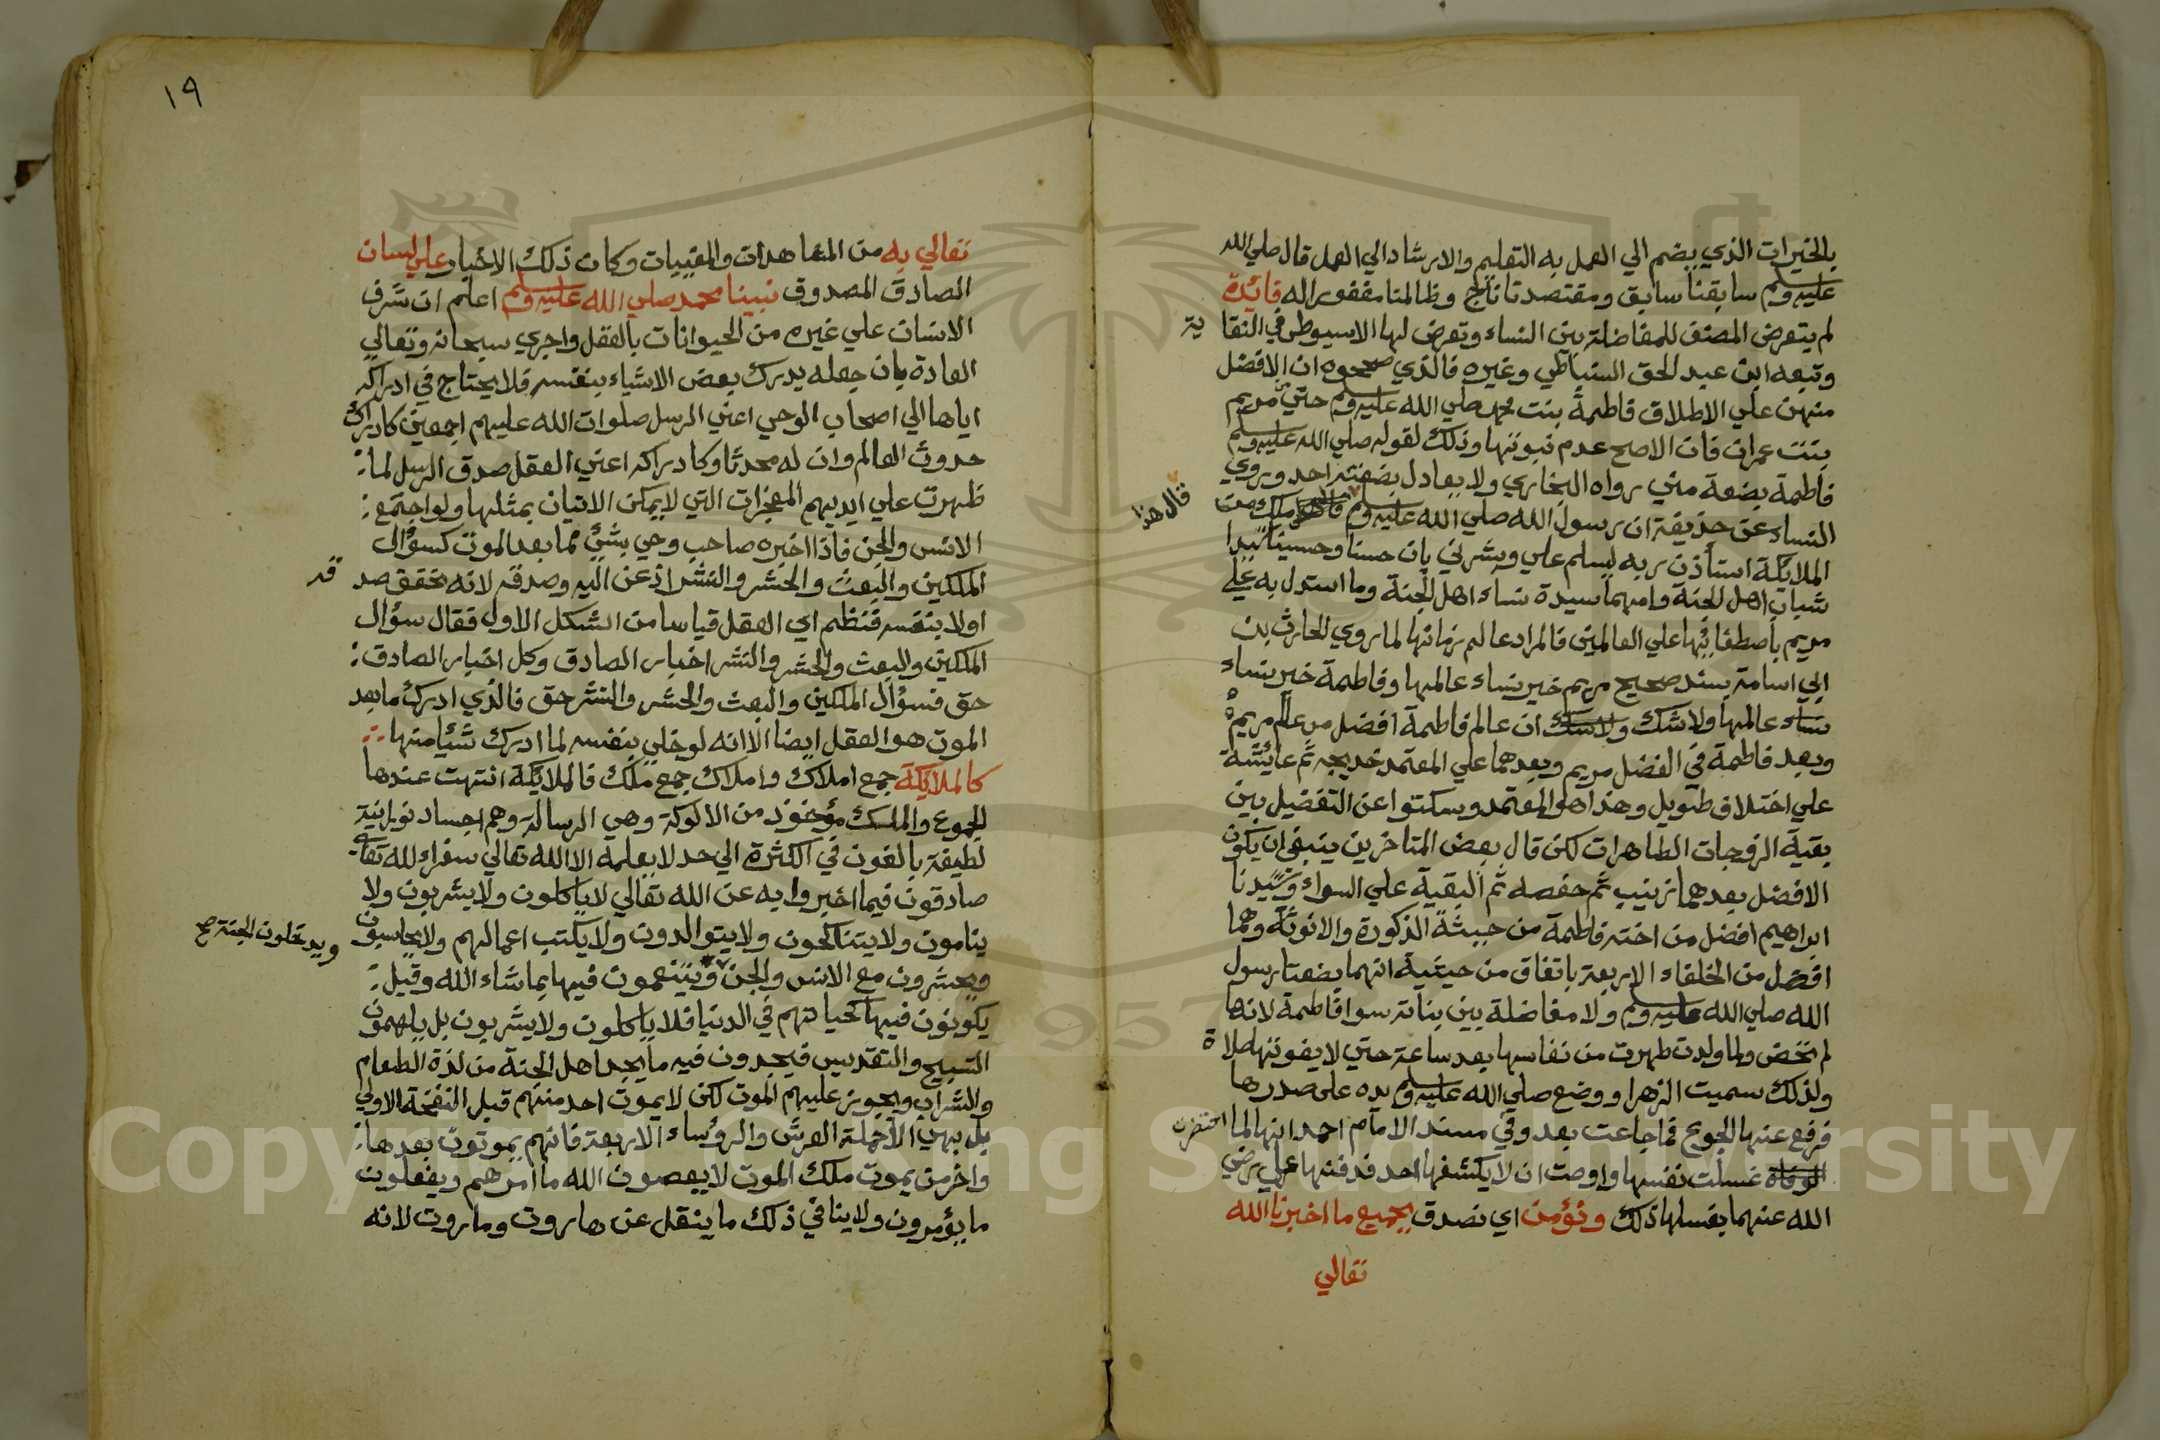 بالخيرات الذي يضم الي العمل به التعليم والارشاد الي العمل قال صلي الله
عليه وسلم سابقنا سابق ومقتصدنا ناج وظالمنا مغفور له فائدة
لم يتعرض المصنف للمفاضلة بين النساء وتعرض لها الاسيوطي في النقا
ية
وتبعه ابن عبد الحق السنباطي وغيره فالذي صححوه ان الافضل
منهن علي الاطلاق فاطمة بنت محمد صلي الله عليه وسلم حتي من مريم
بنت عمران فان الاصح عدم نبوتها وذلك لقوله صلي الله عليه وسلم
فاطمة بضعة مني رواه البخاري ولا يعادل بضعته احد وروي
النساء عن حذيفة ان رسول الله صلي الله عليه وسلم ملك من
قال هذا
الملائكة استأذن ربه ليسلم علي وبشرني بان حسنا وحسينا سيدا
شباب اهل الجنة وامهما سيدة نساء اهل الجنة وما استدل به علي
مريم باصطفائها علي العالمين فالمراد عالم زمانها لما روي الحارث بن
ابي اسامة بسند صحيح مريم خير نساء عالمها وفاطمة خير نساء
نساء عالمها ولا شك ولا شك ان عالم فاطمة افضل من عالم مريم
وبعد فاطمة في الفضل مريم وبعدهما علي المعتمد خديجة ثم عائشة
علي اختلاف طويل وهذا هو المعتمد وسكتوا عن التفضيل بين
بقية الزوجات الطاهرات لكن قال بعض المتاخرين ينبغي ان يكون
الافضل بعدهما زينب ثم حفصه ثم البقية علي السواء وسيدنا
ابراهيم افضل من اخته فاطمة من حيثة الذكورة والانوثة وهما
افضل من الخلفاء الاربعة باتفاق من حيثية انهما بضعتا رسول
الله صلي الله عليه وسلم ولا مفاضلة بين بناته سوا فاطمة لانها
لم تحض ولما ولدت طهرت من نفاسها بعد ساعة حتي لا يفوتها صلاة
ولذلك سميت الزهرا ووضع صلي الله عليه وسلم يده علي صدرها
فرفع عنها الجوع فما جاعت بعد وفي مسند الامام احمد انها لما احتضرت
الوفاة غسلت نفسها واوصت ان لا يكشفها احد فدفنها علي رضي
الله عنهما بغسلها ذلك ونؤمن اي نصدق بجميع ما اخبرنا الله
تعالي
١٩
تعالي به من المشاهدات والمغيبات وكان ذلك الاخبار علي لسان
الصادق المصدوق نبينا محمد صلي الله عليه وسلم اعلم ان شرف
الانسان علي غيره من الحيوانات بالعقل واجري سبحانه وتعالي
العادة بان جعله يدرك بعض الاشياء بنفسه فلا يحتاج في ادراكه
اياها الي اصحاب الوحي اعني الرسل صلوات الله عليهم اجمعين كادراك
حدوث العالم وان له محدثا وكادراكه اعني العقل صدق الرسل لما
ظهرت علي ايديهم المعجزات التي لا يمكن الاتيان بمثلها ولو اجتمع
الانس والجن فاذا اخبره صاحب وحي بشيئ مما بعد الموت كسؤال
الملكين والبعث والحشر والنشر اذعن اليه وصدقه لانه تحقق صد
قه
اولا بنفسه فنظم اي العقل قياسا من الشكل الاول فقال سؤال
الملكين والبعث والحشر والنشر اخبار الصادق وكل اخبار الصادق
حق فسؤال الملكين والبعث والحشر والنشر حق فالذي ادرك ما بعد
الموت هو العقل ايضا الا انه لو خلي بنفسه لما ادرك شئيا منها
كالملائكة جمع املاك واملاك جمع ملك فالملائكة انتهت عندها
الجموع والملك مؤخوذ من الالوكة وهي الرسالة وهم اجساد نورانية
لطيفة بالغون في الكثرة الي حد لا يعلمه الا الله تعالي سفراء لله تعالي
صادقون فيما اخبروا به عن الله تعالي لا ياكلون ولا يشربون ولا
ينامون ولا يتناكحون ولا يتوالدون ولا يكتب اعمالهم ولا يحاسبون
ويحشرون مع الانس والجن ويتنعمون فيها بما شاء الله وقيل
ويدخلون الجنة صح
يكونون فيها كحياتهم في الدنيا فلا ياكلون ولا يشربون بل يلهمون
التسبيح والتقديس فيجدون فيه ما يجد اهل الجنة من لذة الطعام
والشراب ويجوز عليهم الموت لكن لا يموت احد منهم قبل النفخة الاولي
بل بها الا حملة العرش والرؤساء الاربعة فانهم يموتون بعدها
واخر من يموت ملك الموت لا يعصون الله ما امرهم ويفعلون
ما يؤمرون ولا ينافي ذلك ما ينقل عن هاروت وماروت لانه